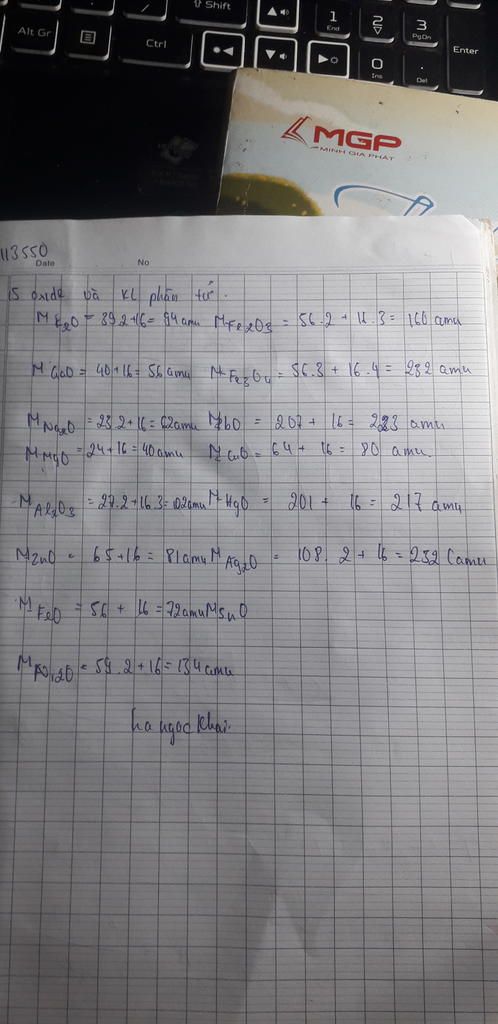 ⇧ Shift
Alt Gr
Ctrl
1
End
2
3
PgDn
Enter
0
Ins
.
Del
MGP
MINH GIA PHÁT
113550
Date No
15 oxide và KL phân tử.
M K2O = 39.2+16= 94 amu M Fe2O3 = 56.2 + 16.3= 160 amu
M CaO = 40+16= 56 amu M Fe3O4 = 56.3 + 16.4 = 232 amu
M Na2O = 23.2+16= 62 amu M PbO = 207 + 16 = 223 amu
M MgO = 24+16= 40 amu M CuO = 64 + 16 = 80 amu.
M Al2O3 = 27.2+16.3=102 amu M HgO = 201 + 16 = 217 amu
M ZnO = 65+16= 81 amu M Ag2O = 108.2 + 16 = 232 (amu
M FeO = 56 + 16 = 72 amu M SnO
= 59.2+16= 134 amu
La ngọc Khai.